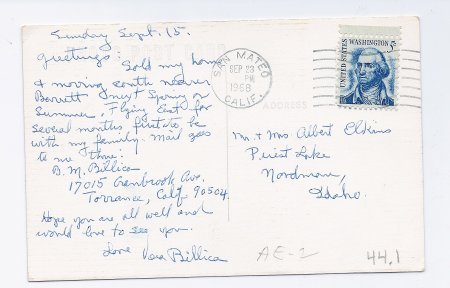 Sunday Sept. 15.
Greetings Sold my home
& moving south nearer
Barrett next Spring or
Summer. Flying East for
several months, first to be
with my family. Mail goes
to me thru:
B. M. Billica
17015 Cranbrook Ave.
Torrance, Calif. 90504.
Hope you are all well and
would love to see you.
Love Vera Billica
SAN MATEO
SEP 23
PM
1968
CALIF.
UNITED STATES
WASHINGTON 5c
ADDRESS
Mr. & Mrs Albert Elkins
Priest Lake
Nordman,
Idaho.
AE-2
44.1